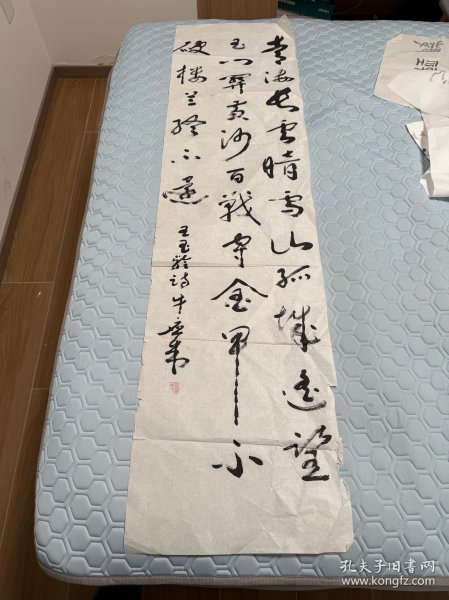 青海长云暗雪山孤城遥望
玉门關黄沙百戰穿金甲不
破楼兰终不還
王昌龄诗牛
孔夫子旧书网
www.kongfz.com